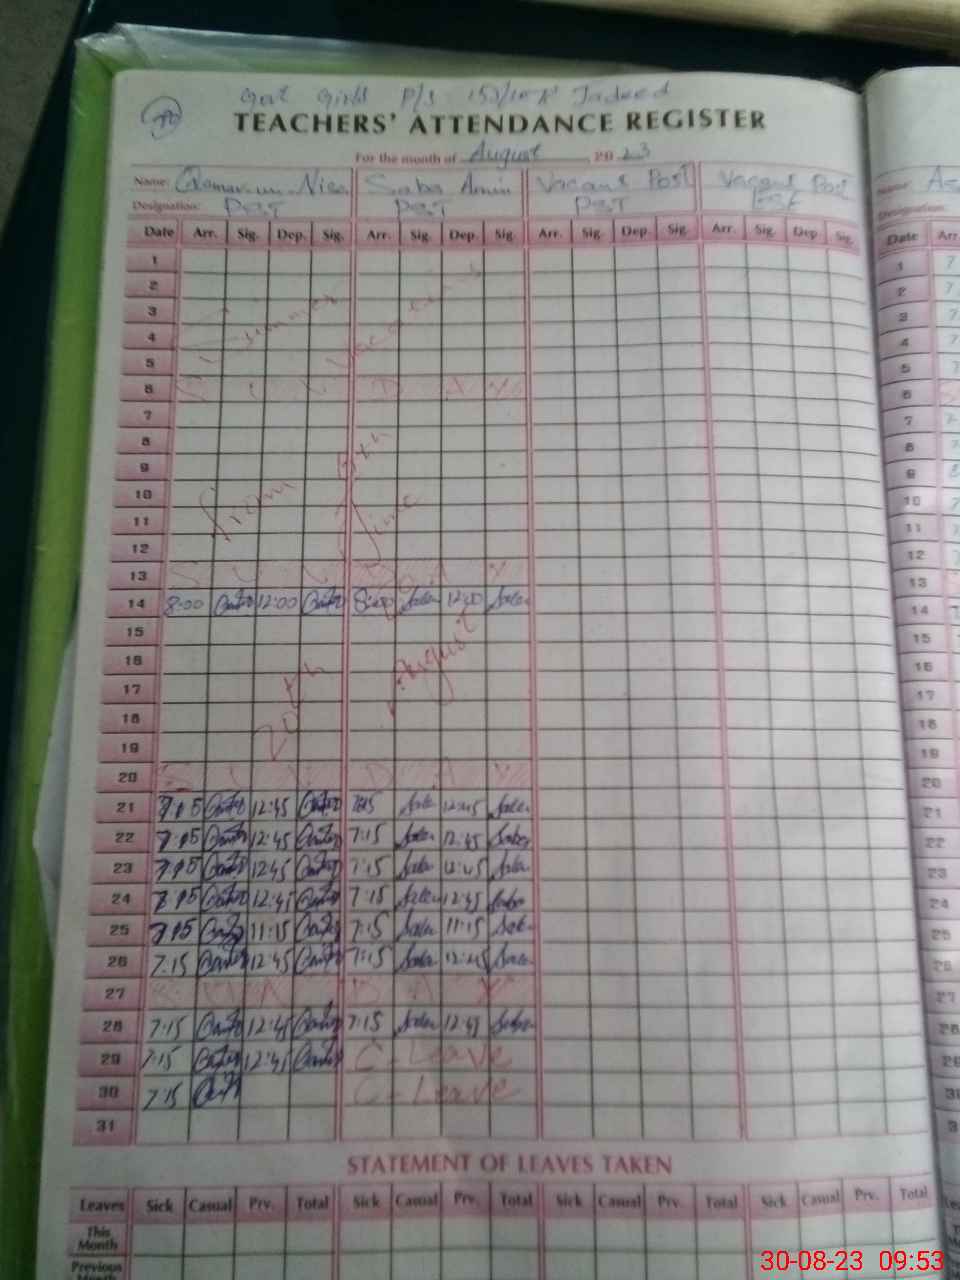 Govt Girls P/S 152/10-R Jadeed
TEACHERS' ATTENDANCE REGISTER
For the month of August 2023
Name: Qamar-un-Nisa Saba Amin Vacant Post Vacant Post
Designation: PST PST PST PST
Date Arr. Sig. Dep. Sig. Arr. Sig. Dep. Sig. Arr. Sig. Dep. Sig. Arr. Sig. Dep. Sig.
1
2
3 Summer
4 Vacations
5
6 S U N D A Y
7
8
9
10 from 6th
11 June
12
13 S U N D A Y
14 8:00 12:00 8:00 Saba 12:00 Saba
15
16 August
17 20th
18
19
20 S U N D A Y
21 7:15 12:45 7:15 Saba 12:45 Saba
22 7:15 12:45 7:15 Saba 12:45 Saba
23 7:15 12:45 7:15 Saba 12:45 Saba
24 7:15 12:45 7:15 Saba 12:45 Saba
25 7:15 11:15 7:15 Saba 11:15 Saba
26 7:15 12:45 7:15 Saba 12:45 Saba
27 S U N D A Y
28 7:15 12:45 7:15 Saba 12:45 Saba
29 7:15 12:45 C-Leave
30 7:15 C-Leave
31
STATEMENT OF LEAVES TAKEN
Leaves Sick Casual Prv. Total Sick Casual Prv. Total Sick Casual Prv. Total Sick Casual Prv. Total
This Month
Previous
Name: As
Designation:
Date Arr
1 7
2 7
3 7
4 7
5 7
6
7
8
9
10
11
12
13
14
15
16
17
18
19
20
21
22
23
24
25
26
27
28
29
30-08-23 09:53